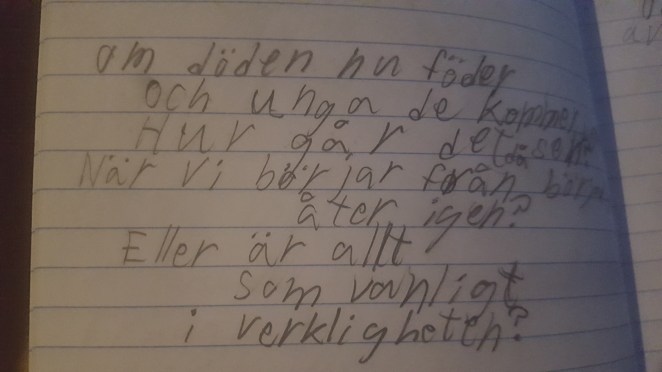 om döden nu föder
och unga de kommer
Hur går det sen?
När vi börjar från början
åter igen?
Eller är allt
som vanligt
i verkligheten?